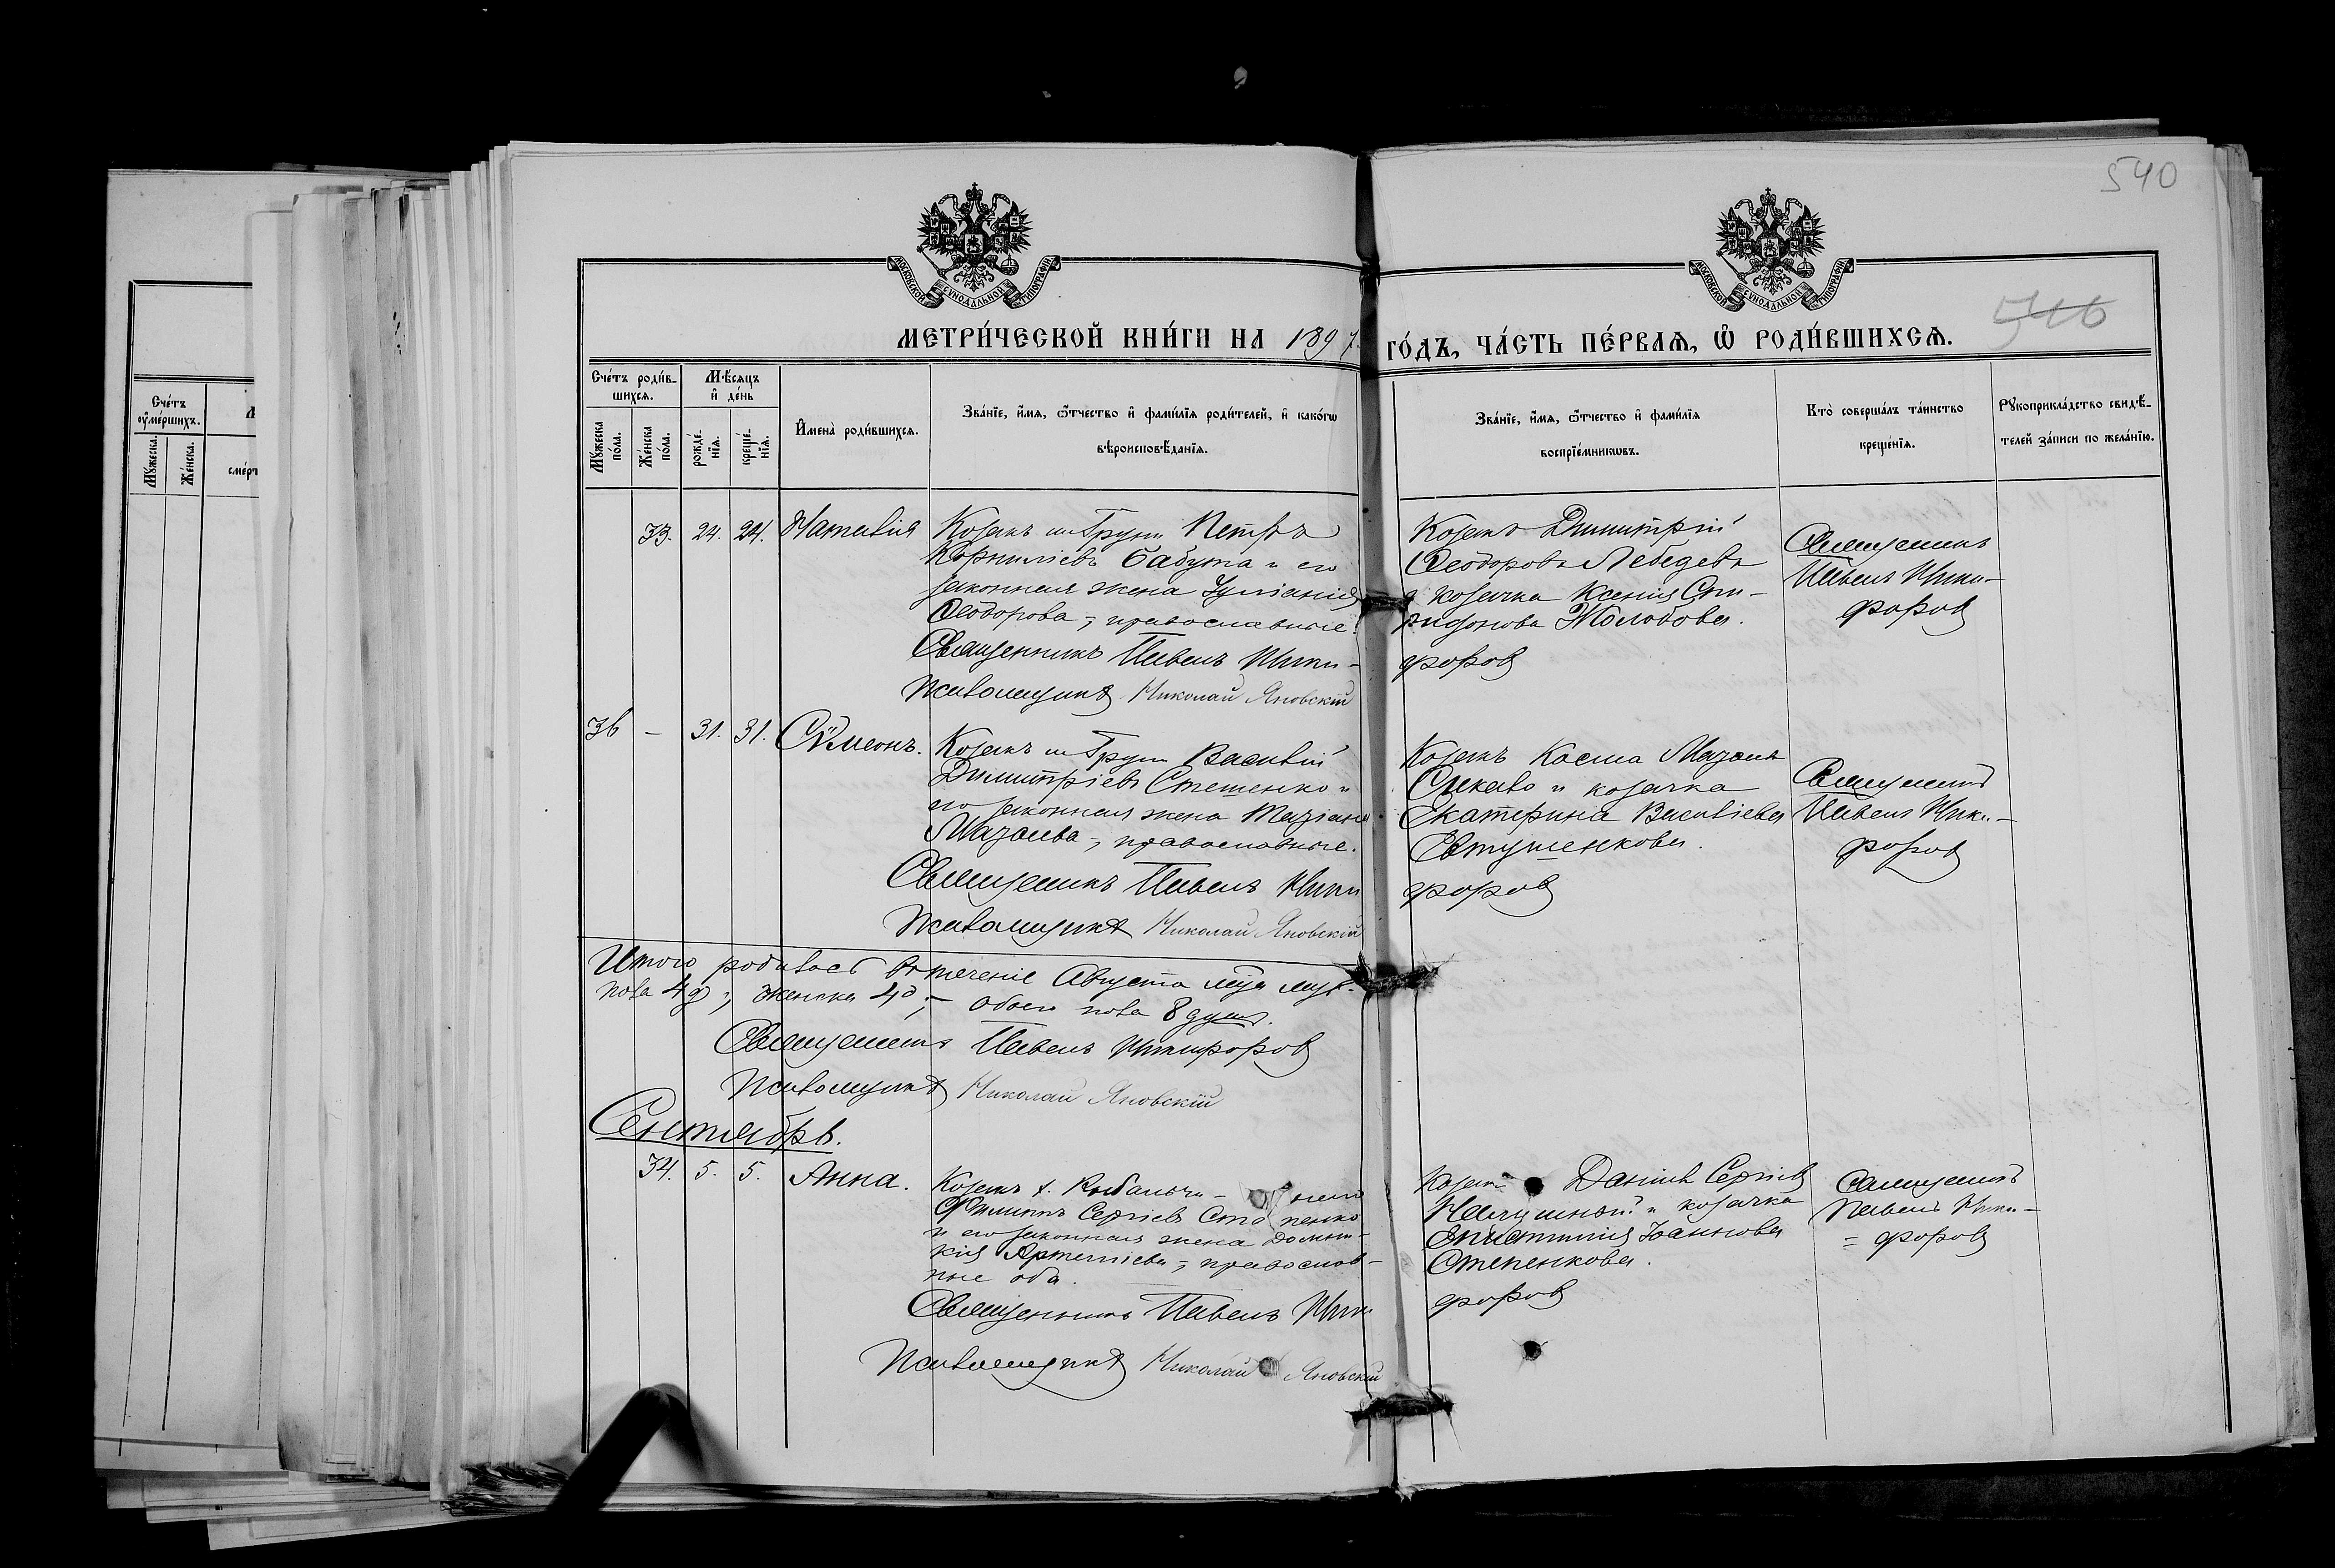 540
546
МОСКОВСКОЙ СѴНОДАЛЬНОЙ ТИПОГРАФІИ
МОСКОВСКОЙ СѴНОДАЛЬНОЙ ТИПОГРАФІИ
МЕТРИ́ЧЕСКОЙ КНИ́ГИ НА 1897 ГО́ДЪ, ЧА́СТЬ ПЕ́РВАѦ, Ѡ҆ РОДИ́ВШИХСѦ.
Сче́тъ ᲂу҆ме́ршихъ.
Мꙋ́жеска.
Же́нска.
Сче́тъ роди́вшихсѧ.
Мꙋ́жеска по́ла.
Же́нска по́ла.
Мѣ́сѧцъ и҆ де́нь
рожде́нїѧ.
креще́нїѧ.
И҆мена̀ роди́вшихсѧ.
Зва́нїе, и҆́мѧ, ѻ҆́тчество и҆ фами́лїѧ роди́телей, и҆ како́гѡ
вѣроисповѣ́данїѧ.
Зва́нїе, и҆́мѧ, ѻ҆́тчество и҆ фами́лїѧ
воспрїе́мникѡвъ.
Кто̀ соверша́лъ та́инство
креще́нїѧ.
Рꙋкоприкла́дство свидѣ́-
телей за́писи по жела́нїю.
33. 24. 24. Наталія
Козакъ м. Груни Петръ
Корниліевъ Бабута и его
законная жена Іуліанія
Ѳеодорова, православные.
Священникъ Павелъ Ники-
форовъ
Псаломщикъ Николай Яновскій
Козакъ Димитрій
Ѳеодоровъ Лебедевъ
и козачка Ксенія Спи-
ридонова Жолобова.
Священникъ
Павелъ Ники-
форовъ
36 – 31. 31. Сѵмеонъ.
Козакъ м. Груни Василій
Димитріевъ Стешенко и
его законная жена Маріанна
Мазаева, православные.
Священникъ Павелъ Ники
форовъ
Псаломщикъ Николай Яновскій
Козакъ Косма
и козачка
Екатерина Василіева
Евтушенкова.
Священникъ
Павелъ Ники-
форовъ
Итого родилось въ теченіе Августа м-ца муж.
пола 4 д; женска 4 д; – обоего пола 8 душъ.
Священникъ Павелъ Никифоровъ
Псаломщикъ Николай Яновскій
Сентябрь.
34. 5. 5. Анна.
Козакъ х.
Филиппъ Сергіевъ
и его законная жена Домни-
кія Артеміева, православ-
ные оба.
Священникъ Павелъ Ники
форовъ
Псаломщикъ Николай Яновскій
Козакъ Даніилъ Сергіевъ
и козачка
Іоаннова
Степенкова.
Священникъ
Павелъ Ники-
= форовъ